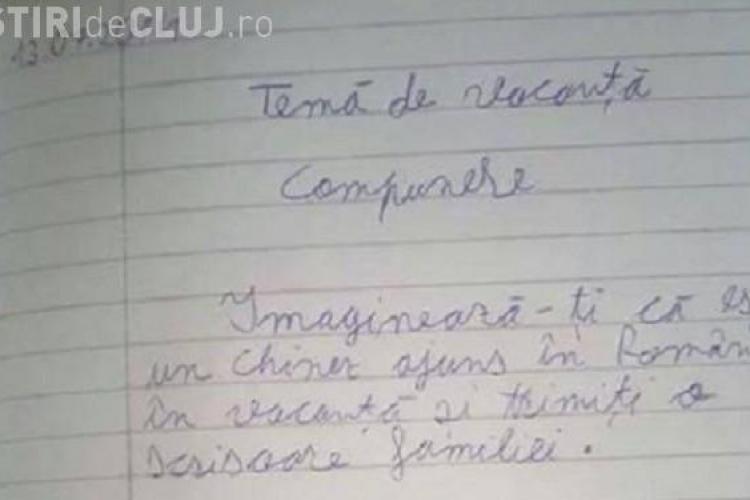 STIRIdeCLUJ.ro
Temă de vacanță
Compunere
Imaginează-ți că es
un chinez ajuns în Român
în vacanță si trimiți o
scrisoare familiei.